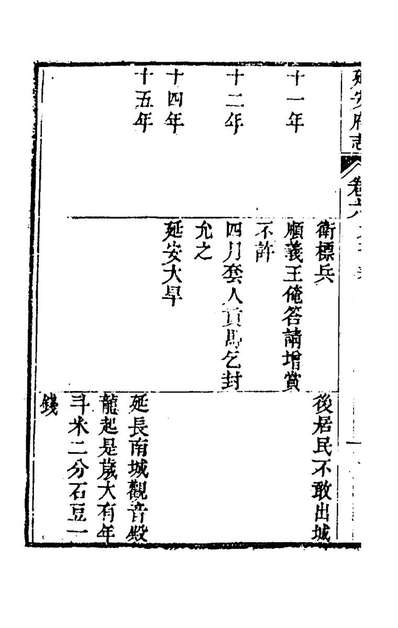 延安府志
卷六
衛標兵
後居民不敢出城
十一年
順義王俺答請增賞
不許
十二年
四月套人貢馬乞封
允之
十四年
延安大旱
十五年
延長南城觀音殿
龍起是歲大有年
斗米二分石豆一
錢